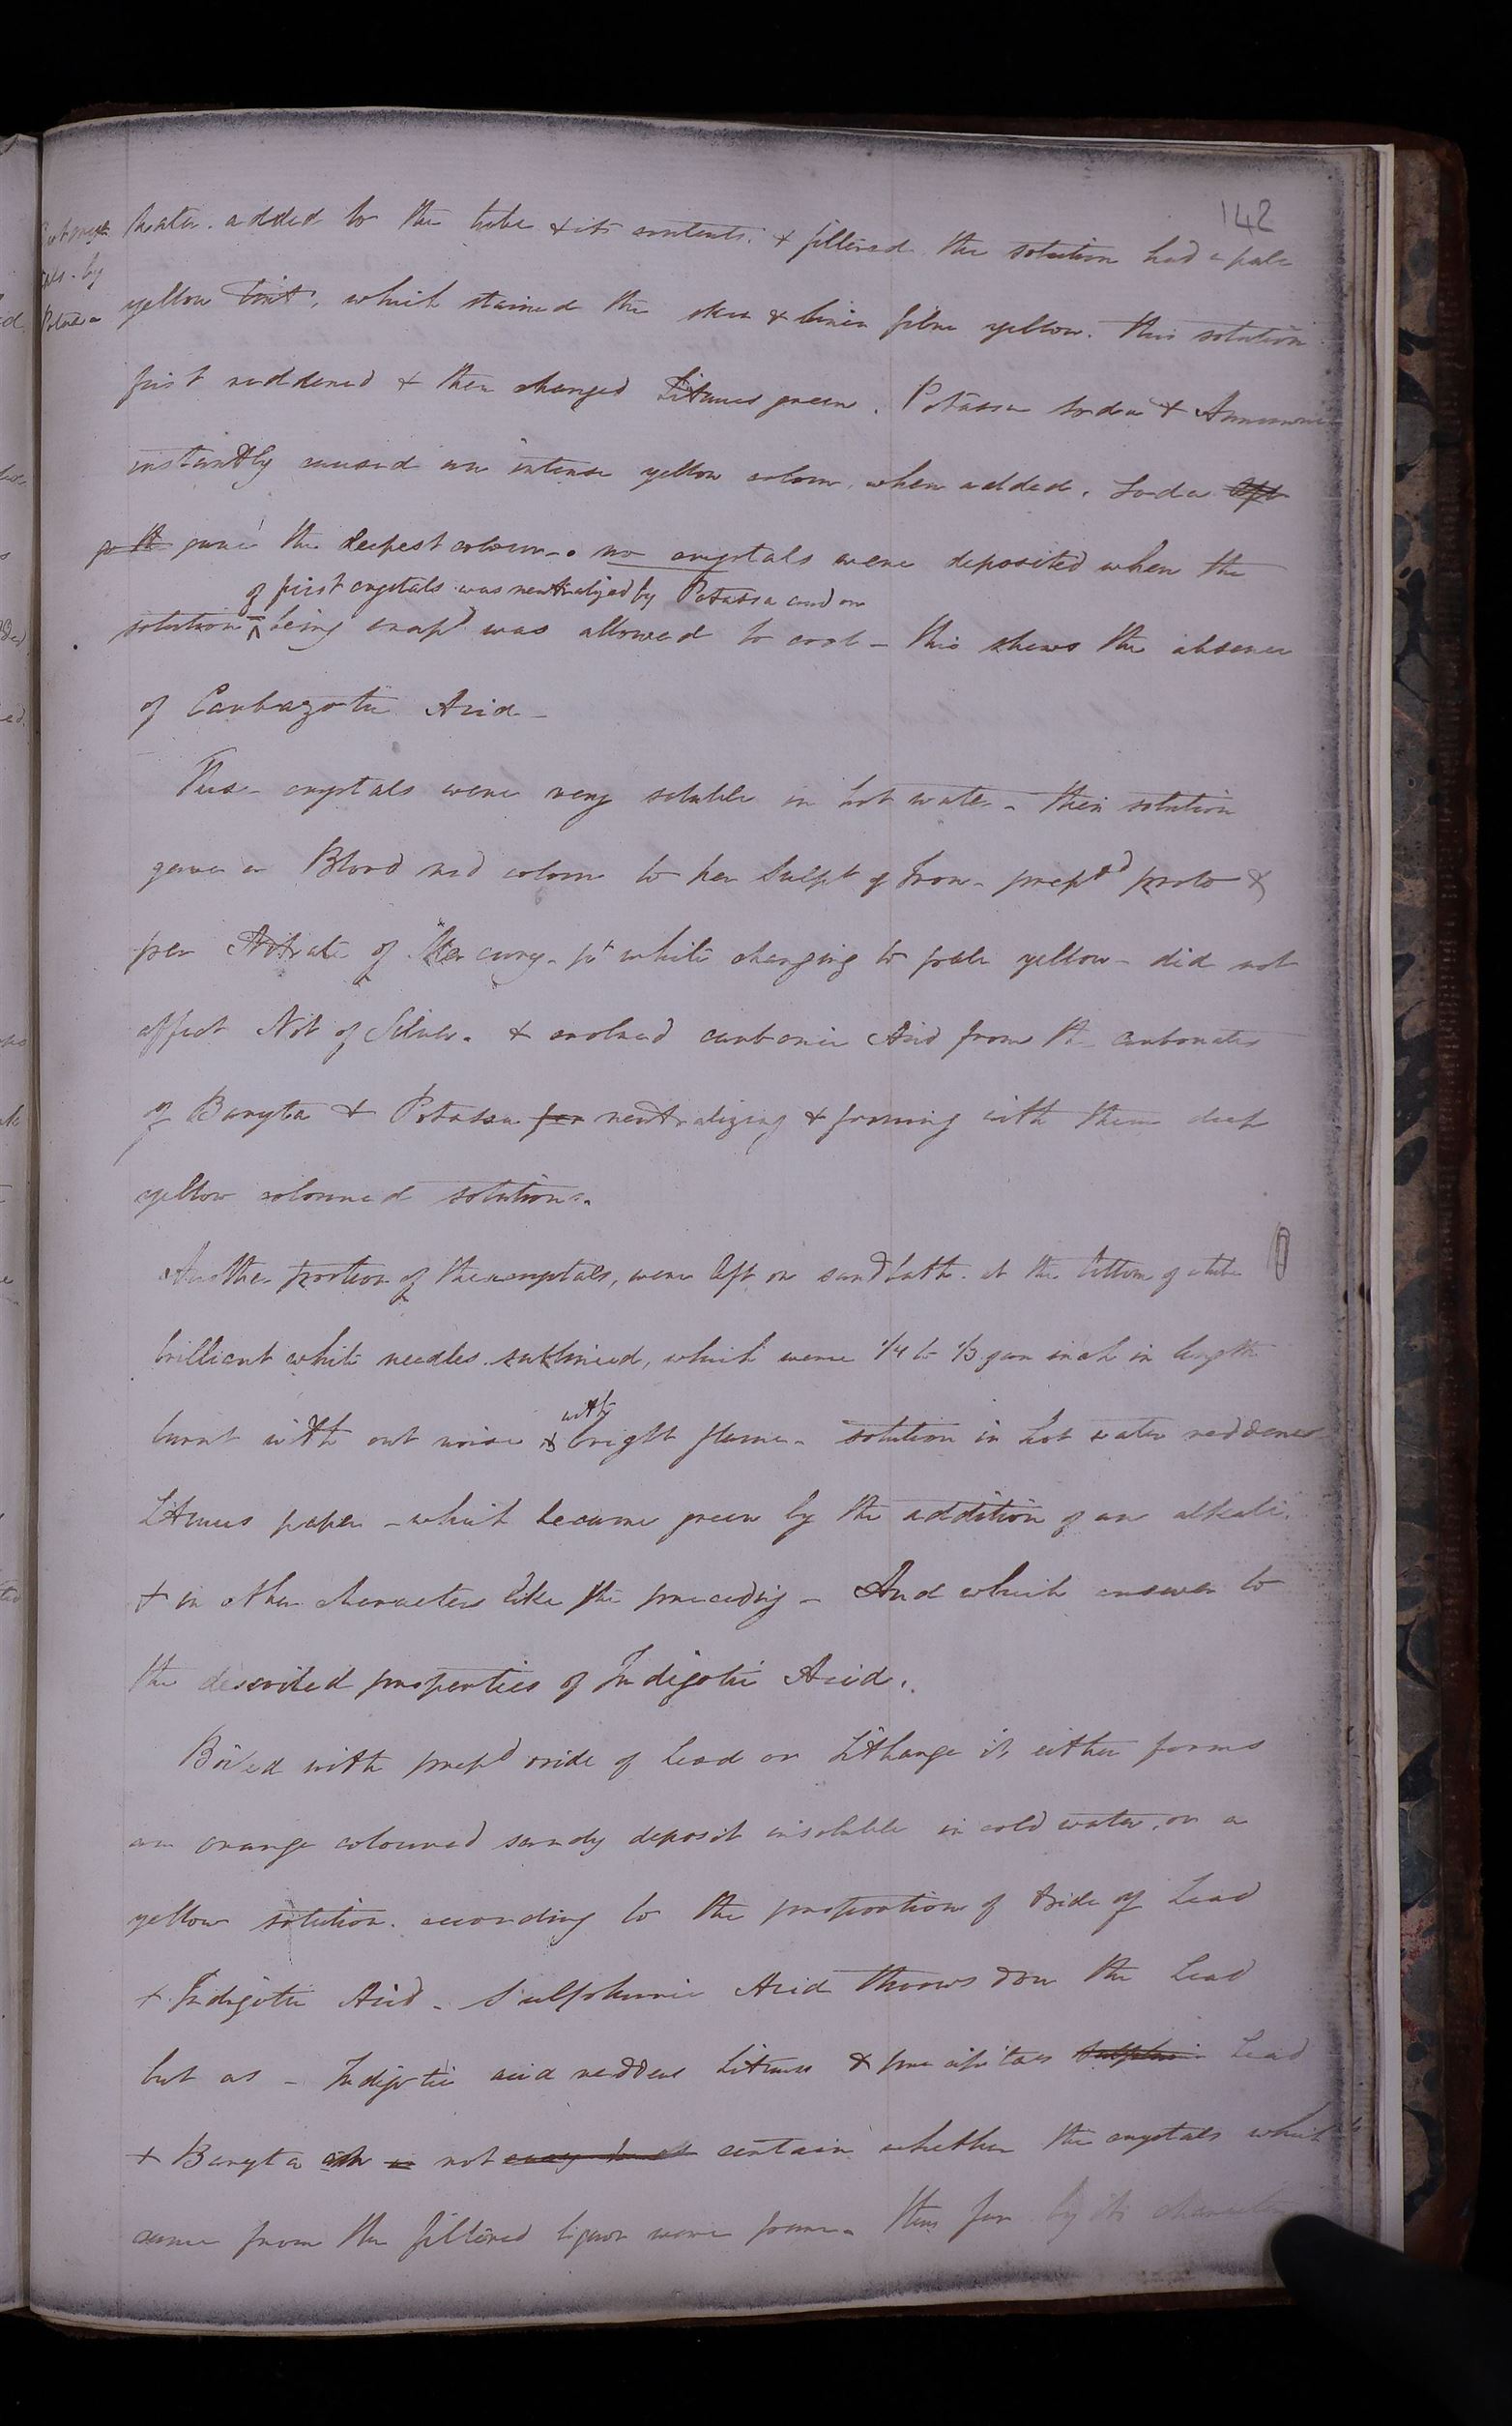 142
water. added to the tube & its contents. & filtered the solution had a pale
yellow tint, which stained the skin & linen fibre yellow. this solution
first reddened & then changed Litmus green. Potassa Soda & Ammonia
instantly caused an intense yellow colour, when added. Soda
gave the deepest colour. no crystals were deposited when the
of first crystals was neutralized by Potassa and on
solution being evapd was allowed to cool - this shews the absence
of Carbazotic Acid -
These crystals were very soluble in hot water - their solution
gave a Blood red colour to per Sulpt of Iron - prepd proto &
per Nitrate of Mercury - pt white changing to pale yellow - did not
affect Nit of Silver. & evolved carbonic Acid from the carbonates
of Baryta & Potassa for neutralizing & forming with them deep
yellow coloured solutions.
Another portion of these crystals, were left on sand bath. at the bottom of a tube
brilliant white needles sublimed, which were 1/4 to 1/3 of an inch in length
with
burnt with out noise & bright flame - solution in hot water reddened
Litmus paper - which became green by the addition of an alkali.
& in other characters like the preceding - And which answer to
the described properties of Indigotic Acid.
Boiled with prepd oxide of Lead or Litharge it, either forms
an orange coloured sandy deposit insoluble in cold water, or a
yellow solution. according to the proportion of Oxide of Lead
& Indigotic Acid - Sulphuric Acid throws down the Lead
but as - Indigotic acid reddens Litmus & precipitates Sulphuric Lead
& Baryta not certain whether the crystals which
came from the filtered liquor were pure - thus far by its characters